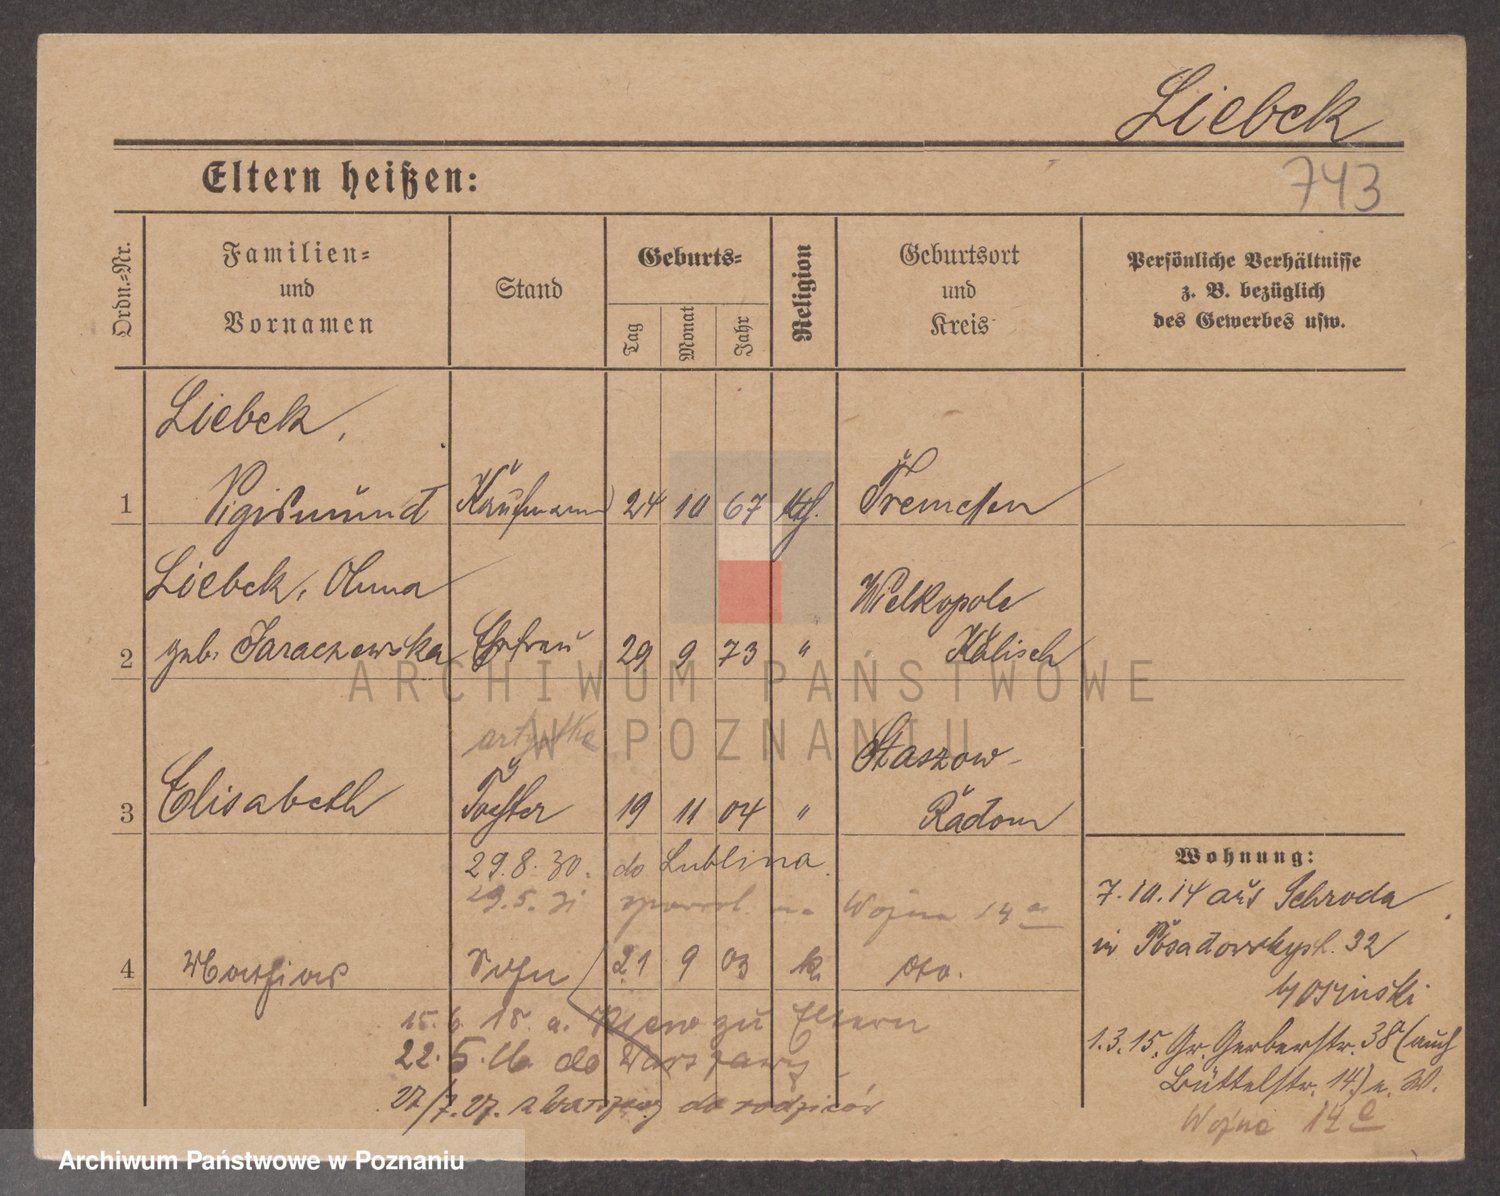 Liebek
743
Eltern heißen:
Ordn.-Nr.
Familien-
und
Vornamen
Stand
Geburts-
Tag
Monat
Jahr
Religion
Geburtsort
und
Kreis
Persönliche Verhältnisse
z. B. bezüglich
des Gewerbes usw.
Liebek,
1 Sigismund Kaufmann 24 10 67 kth. Tremessen
Liebek, Anna Wielkopole
2 geb. Jaraczewska Ehefrau 29 9 73 " Kalisch
artystka Staszow-
3 Elisabeth Tochter 19 11 04 " Radom
29.8.30. do Lublina.
29.5.31 powrót na Wojna 14a
4 Mathias Sohn 21 9 03 k. dto.
15.6.15. a. zu Eltern
22.5.16. do Warszawy
27/7.27. z Warszawy do rodziców
Wohnung:
7.10.14 aus Schroda
in Posadowskystr. 32
b/
1.3.15. Gr. Gerberstr. 38 (auch
Büttelstr. 14.) e. W.
Wojna 14a
ARCHIWUM PAŃSTWOWE
W POZNANIU
Archiwum Państwowe w Poznaniu